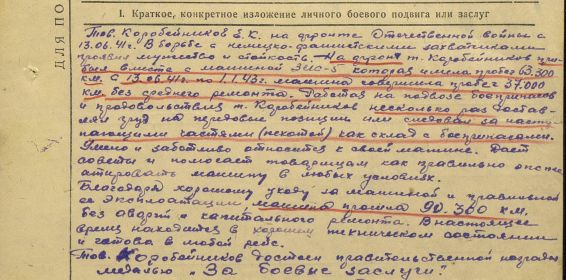 ДЛЯ ПО
I. Краткое, конкретное изложение личного боевого подвига или заслуг
Тов. Коробейников Е.К. на фронте Отечественной войны с
13.06.41г. В борьбе с немецко-фашистскими захватчиками
проявил мужество и стойкость. На фронт т. Коробейников при-
был вместе с машиной ЗИС-5 которая имела пробег 63.300
км. С 13.06.41г по 1.1.43г. машина совершила пробег 37.000
км. без среднего ремонта. Работая на подвозе боеприпасов
и продовольствия т. Коробейников несколько раз достав-
лял груз на передовые позиции или следовал за насту-
пающими частями (пехотой) как склад с боеприпасами.
Умело и заботливо относится к своей машине. Дает
советы и помогает товарищам как правильно экспло-
атировать машину в любых условиях.
Благодаря хорошему уходу за машиной и правильной
ее эксплоатации, машина прошла 90.300 км.
без аварий и капитального ремонта. В настоящее
время находится в хорошем техническом состоянии
и готова в любой рейс.
Тов. Коробейников достоин правительственной награды
медалью „За боевые заслуги".